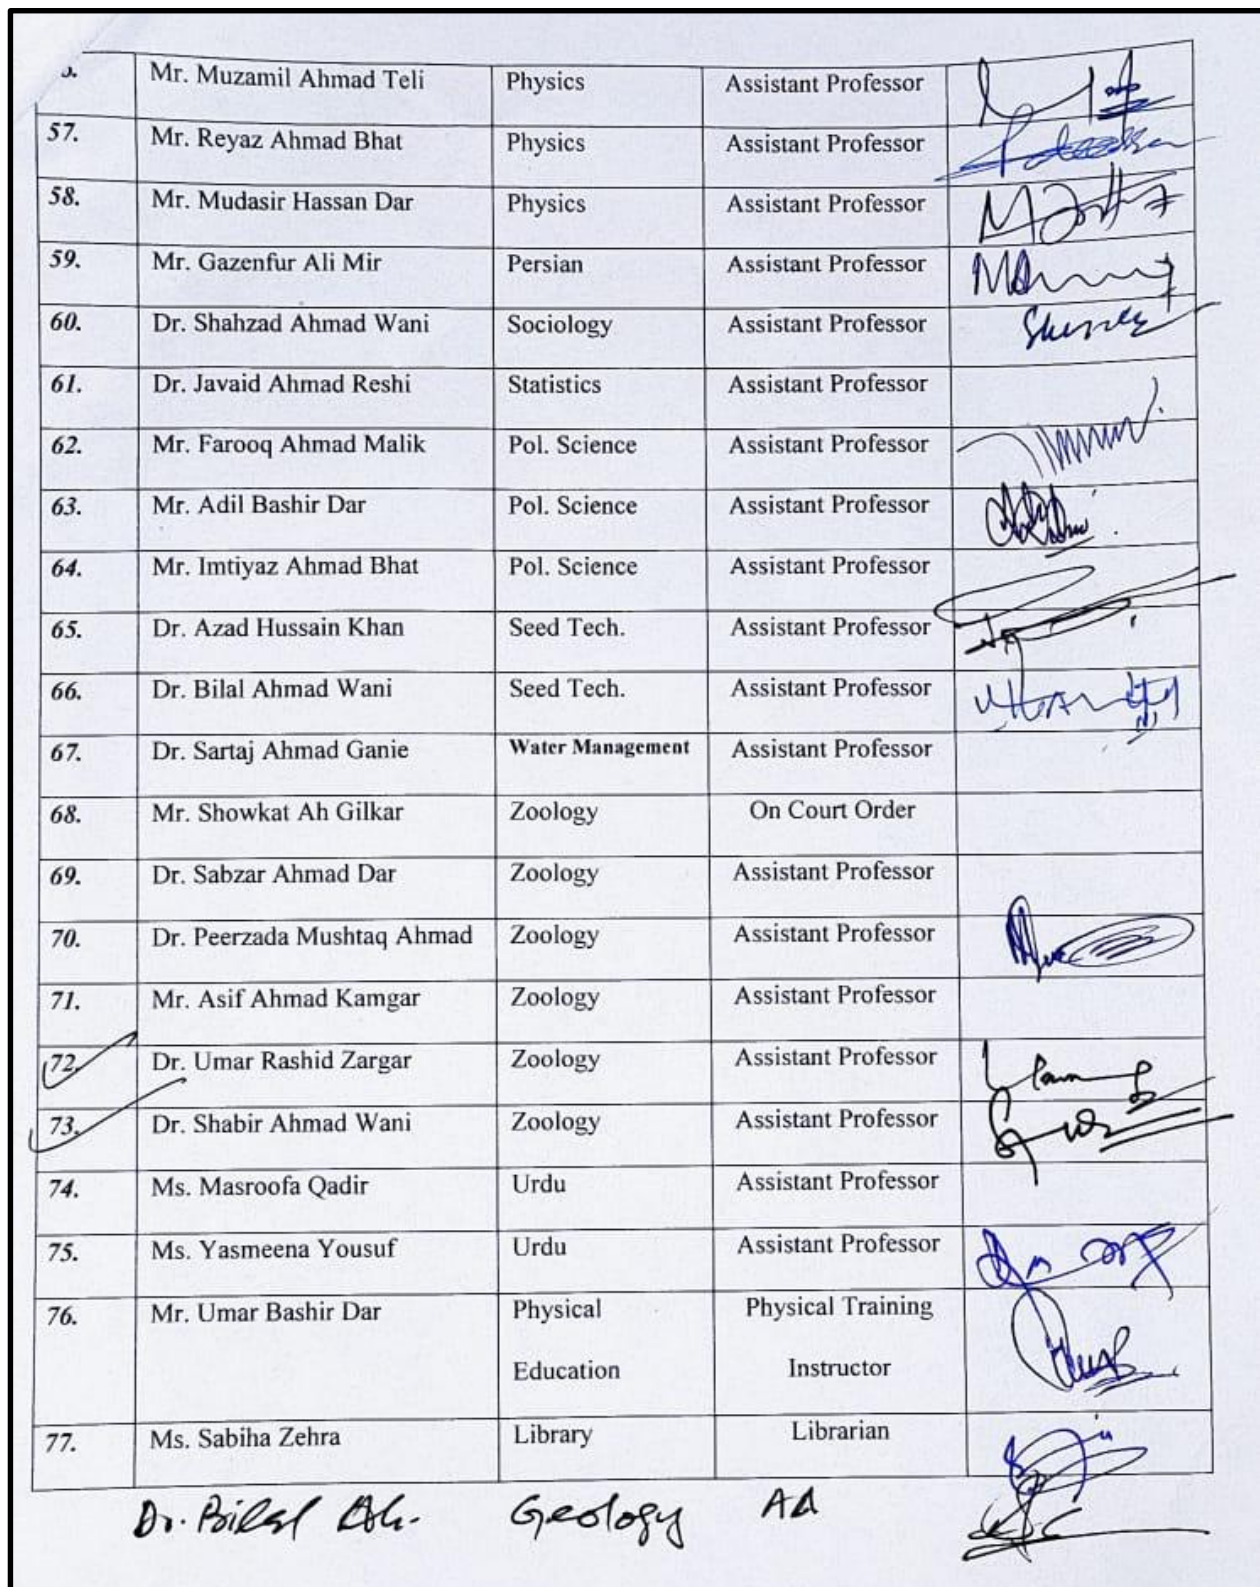 Mr. Muzamil Ahmad Teli Physics Assistant Professor
57. Mr. Reyaz Ahmad Bhat Physics Assistant Professor
58. Mr. Mudasir Hassan Dar Physics Assistant Professor
59. Mr. Gazenfur Ali Mir Persian Assistant Professor
60. Dr. Shahzad Ahmad Wani Sociology Assistant Professor
61. Dr. Javaid Ahmad Reshi Statistics Assistant Professor
62. Mr. Farooq Ahmad Malik Pol. Science Assistant Professor
63. Mr. Adil Bashir Dar Pol. Science Assistant Professor
64. Mr. Imtiyaz Ahmad Bhat Pol. Science Assistant Professor
65. Dr. Azad Hussain Khan Seed Tech. Assistant Professor
66. Dr. Bilal Ahmad Wani Seed Tech. Assistant Professor
67. Dr. Sartaj Ahmad Ganie Water Management Assistant Professor
68. Mr. Showkat Ah Gilkar Zoology On Court Order
69. Dr. Sabzar Ahmad Dar Zoology Assistant Professor
70. Dr. Peerzada Mushtaq Ahmad Zoology Assistant Professor
71. Mr. Asif Ahmad Kamgar Zoology Assistant Professor
72. Dr. Umar Rashid Zargar Zoology Assistant Professor
73. Dr. Shabir Ahmad Wani Zoology Assistant Professor
74. Ms. Masroofa Qadir Urdu Assistant Professor
75. Ms. Yasmeena Yousuf Urdu Assistant Professor
76. Mr. Umar Bashir Dar Physical Physical Training
Education Instructor
77. Ms. Sabiha Zehra Library Librarian
Dr. Bilal Ah. Geology